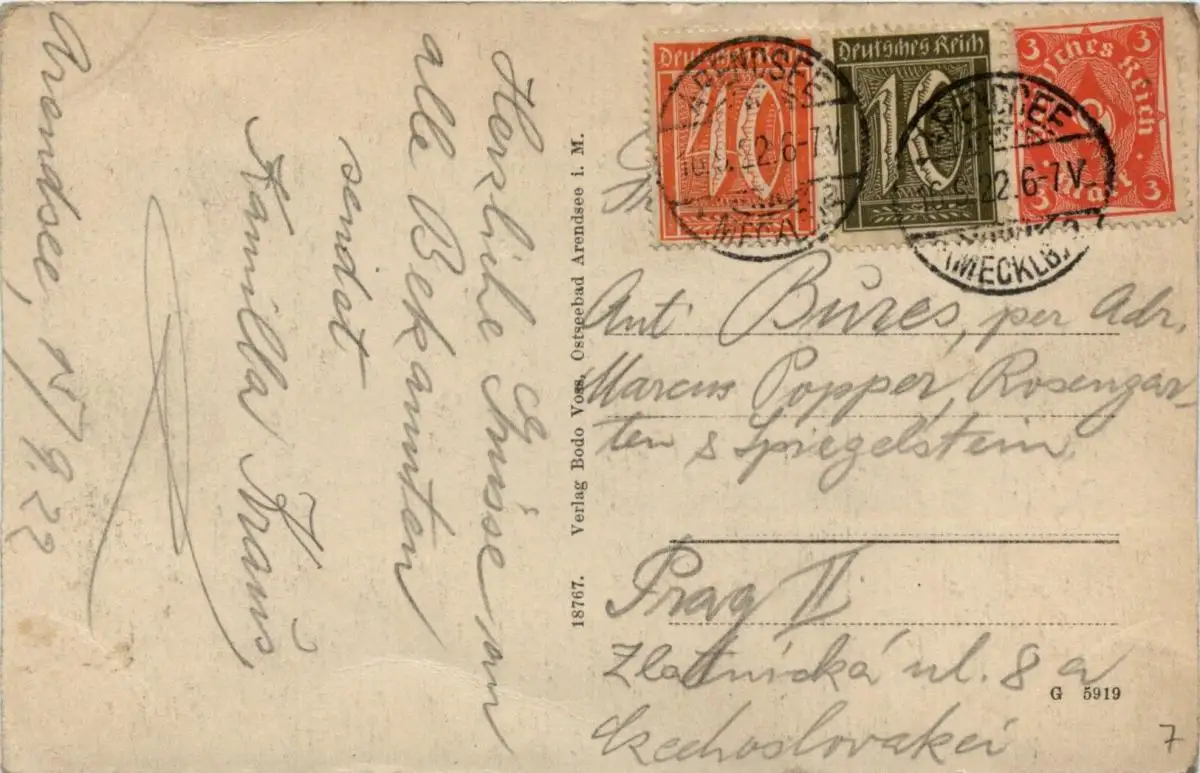 Arendsee, 15/9.22
Herzliche Grüsse an
alle Bekannten
sendet
Kamilla Kraus
18767. Verlag Bodo Voss, Ostseebad Arendsee i. M.
Deutsches Reich
40
Deutsches Reich
10
3 3
Deutsches Reich
3 Mark 3
ARENDSEE
6-7V
(MECKLB)
ARENDSEE
16.9.22.6-7V
(MECKLB)
Ant. Bureš, per Adr.
Marcus Popper, Rosengar-
ten & Spiegelstein
Prag II
Zlatnická ul. 8 a
Czechoslovakei
G 5919
7